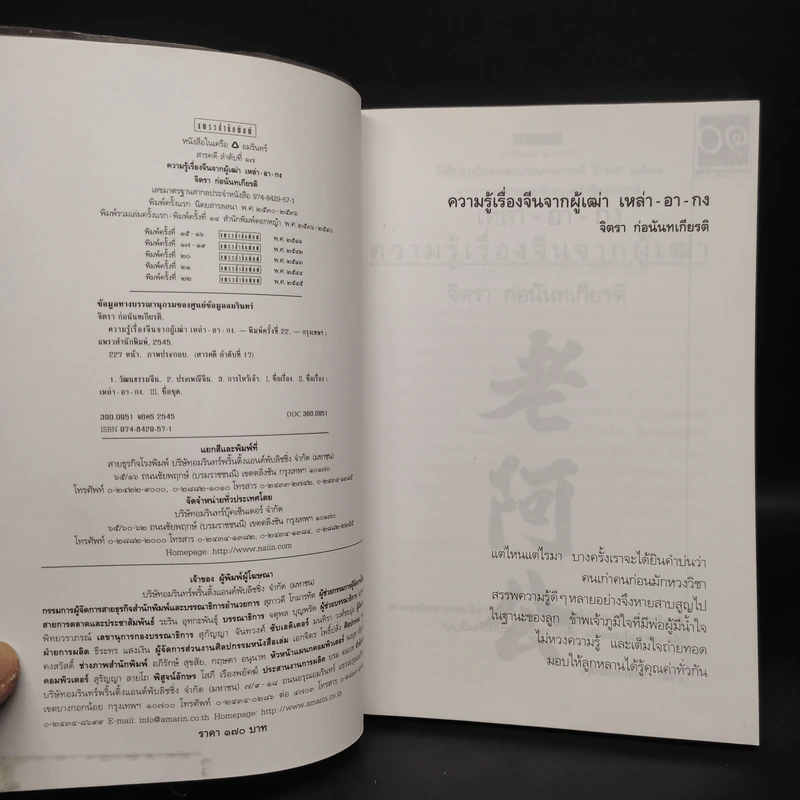 แพรวสำนักพิมพ์
หนังสือในเครือ อมรินทร์
สารคดี ลำดับที่ ๑๗
ความรู้เรื่องจีนจากผู้เฒ่า เหล่า-อา-กง
จิตรา ก่อนันทเกียรติ
เลขมาตรฐานสากลประจำหนังสือ 974-8429-57-1
พิมพ์ครั้งแรก นิตยสารลลนา พ.ศ. ๒๕๓๐-๒๕๓๖
พิมพ์รวมเล่มครั้งแรก-พิมพ์ครั้งที่ ๑๔ สำนักพิมพ์ดอกหญ้า พ.ศ. ๒๕๓๖-๒๕๔๐
พิมพ์ครั้งที่ ๑๕-๑๖ แพรวสำนักพิมพ์ พ.ศ. ๒๕๔๑
พิมพ์ครั้งที่ ๑๗-๑๙ แพรวสำนักพิมพ์ พ.ศ. ๒๕๔๒
พิมพ์ครั้งที่ ๒๐ แพรวสำนักพิมพ์ พ.ศ. ๒๕๔๓
พิมพ์ครั้งที่ ๒๑ แพรวสำนักพิมพ์ พ.ศ. ๒๕๔๔
พิมพ์ครั้งที่ ๒๒ แพรวสำนักพิมพ์ พ.ศ. ๒๕๔๕
ข้อมูลทางบรรณานุกรมของศูนย์ข้อมูลอมรินทร์
จิตรา ก่อนันทเกียรติ.
ความรู้เรื่องจีนจากผู้เฒ่า เหล่า-อา-กง. — พิมพ์ครั้งที่ 22. — กรุงเทพฯ :
แพรวสำนักพิมพ์, 2545.
227 หน้า. ภาพประกอบ. (สารคดี ลำดับที่ 17)
1. วัฒนธรรมจีน. 2. ประเพณีจีน. 3. การไหว้เจ้า. I. ชื่อเรื่อง. II. ชื่อเรื่อง :
เหล่า-อา-กง. III. ชื่อชุด.
390.0951 จ๒๓๖ 2545 DDC 390.0951
ISBN 974-8429-57-1
แยกสีและพิมพ์ที่
สายธุรกิจโรงพิมพ์ บริษัทอมรินทร์พริ้นติ้งแอนด์พับลิชชิ่ง จำกัด (มหาชน)
๖๕/๑๖ ถนนชัยพฤกษ์ (บรมราชชนนี) เขตตลิ่งชัน กรุงเทพฯ ๑๐๑๗๐
โทรศัพท์ ๐-๒๔๒๒-๙๐๐๐, ๐-๒๘๘๒-๑๐๑๐ โทรสาร ๐-๒๔๓๓-๒๗๔๒, ๐-๒๔๓๔-๑๓๘๕
จัดจำหน่ายทั่วประเทศโดย
บริษัทอมรินทร์บุ๊คเซ็นเตอร์ จำกัด
๖๕/๖๐-๖๒ ถนนชัยพฤกษ์ (บรมราชชนนี) เขตตลิ่งชัน กรุงเทพฯ ๑๐๑๗๐
โทรศัพท์ ๐-๒๘๘๒-๒๐๐๐ โทรสาร ๐-๒๔๓๔-๑๓๘๓, ๐-๒๔๓๔-๑๓๘๔,
Homepage: http://www.naiin.com
เจ้าของ ผู้พิมพ์ผู้โฆษณา
บริษัทอมรินทร์พริ้นติ้งแอนด์พับลิชชิ่ง จำกัด (มหาชน)
กรรมการผู้จัดการสายธุรกิจสำนักพิมพ์และบรรณาธิการอำนวยการ สุภาวดี โกมารทัต
สายการตลาดและประชาสัมพันธ์ ระริน อุทกะพันธุ์ บรรณาธิการ จตุพล บุญพรัด ผู้ช่วยบรรณาธิการ
พิทยวราภรณ์ เลขานุการกองบรรณาธิการ สุกัญญา จันทวงศ์ ซับเอดิเตอร์ มนทิรา
ฝ่ายการผลิต ธีระทร แสงเงิน ผู้จัดการส่วนงานศิลปกรรมหนังสือเล่ม เอกจิตร
คงสวัสดิ์ ช่างภาพสำนักพิมพ์ อภิรักษ์ สุขสัย, กฤษดา อนุนาท หัวหน้าแผนกคอมพิวเตอร์
คอมพิวเตอร์ สุรัญญา ลายโถ พิสูจน์อักษร โสภี เรืองพยัคฆ์ ประสานงานการผลิต
บริษัทอมรินทร์พริ้นติ้งแอนด์พับลิชชิ่ง จำกัด (มหาชน) ๗/๙-๑๘ ถนนอรุณอมรินทร์
เขตบางกอกน้อย กรุงเทพฯ ๑๐๗๐๐ โทรศัพท์ ๐-๒๔๓๔-๐๒๘๖ ต่อ ๔๗๐๓ โทรสาร
๐-๒๔๓๔-๘๖๙๙ E-mail: info@amarin.co.th Homepage: http://www.amarin.co.th
ราคา ๑๗๐ บาท
ความรู้เรื่องจีนจากผู้เฒ่า เหล่า-อา-กง
จิตรา ก่อนันทเกียรติ
แต่ไหนแต่ไรมา บางครั้งเราจะได้ยินคำบ่นว่า
คนเก่าคนก่อนมักหวงวิชา
สรรพความรู้ดีๆ หลายอย่างจึงหายสาบสูญไป
ในฐานะของลูก ข้าพเจ้าภูมิใจที่มีพ่อผู้มีน้ำใจ
ไม่หวงความรู้ และเต็มใจถ่ายทอด
มอบให้ลูกหลานได้รู้คุณค่าทั่วกัน